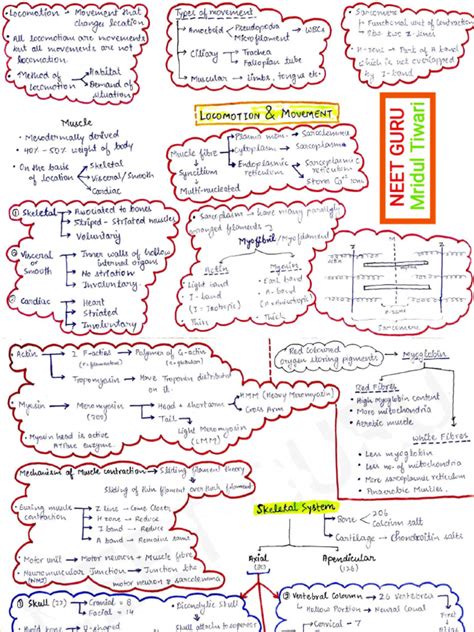 Locomotion → Movement that
change location
All locomotion are movements
but all movements are not
locomotion.
Method of → Habitat
locomotion → Demand of
situation
Types of movement
Amoeboid → Pseudopodia → WBCs
Microfilament
Ciliary → Trachea
Fallopian tube
Muscular → Limbs, tongue etc.
Sarcomere
Functional unit of contraction
Part of A band
which is not overlapped
by I-band
LOCOMOTION & MOVEMENT
NEET GURU
Mridul Tiwari
Muscle
Mesodermally derived
40% - 50% weight of body
On the basis → Skeletal
of location → Visceral/Smooth
Cardiac
Muscle fibre
Plasma mem. → Sarcolemma
Cytoplasm → Sarcoplasm
Endoplasmic → Sarcoplasmic
reticulum reticulum
Stores Ca²⁺ ions
Syncitium
Multi-nucleated
① Skeletal → Associated to bones
Striped - Striated muscles
Voluntary
② Visceral → Inner walls of hollow
or internal organs
Smooth → No striation
Involuntary
Cardiac → Heart
Striated
Involuntary
Sarcoplasm → have many parallely
arranged filaments
Myofibril / Myofilament
Actin
Light Band
I - Band
(I - Isotropic)
Thin
Myosin
Dark band
A band
Thick
Z M Z
Sarcomere
Actin → 2 F-actins → Polymer of G-actin
Tropomyosin → Have Troponin distributed
on it
Myosin → Meromyosin → Head + short arm → HMM (Heavy Meromyosin)
Cross Arm
Tail → Light Meromyosin
(LMM)
Myosin head is active
ATPase enzyme.
Red coloured
oxygen storing pigments → Myoglobin
Red Fibres
High Myoglobin content
More mitochondria
Aerobic muscle
White Fibres
Less myoglobin
Less no. of mitochondria
More sarcoplasmic reticulum
Anaerobic Muscles.
Mechanism of Muscle contraction → Sliding filament theory
Sliding of thin filament over thick filament
During muscle → Z line → Come Closer
contraction → H zone → Reduce
I band → Reduce
A band → Remains same
Motor unit → Motor neuron + Muscle fibre
Neuromuscular Junction → Junction btw
(NMJ) motor neuron & sarcolemma
Skeletal System
Bone → 206
Calcium salt
Cartilage → Chondroitin salts
Axial
Apendicular
(126)
① Skull (22) → Cranial = 8
Facial = 14
Dicondylic Skull
② Vertebral Column → 26 Vertebras
Hollow Portion → Neural Canal
Cervical = 7